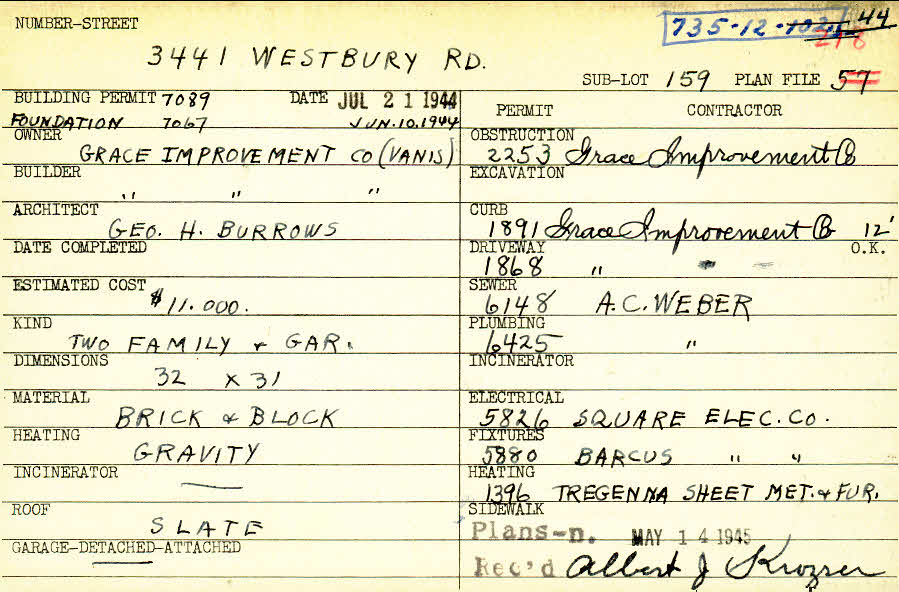 NUMBER-STREET
735-12-102 44
218
3441 WESTBURY RD.
SUB-LOT 159 PLAN FILE 57
BUILDING PERMIT 7089 DATE JUL 21 1944
FOUNDATION 7067 JUN.10.1944
OWNER
GRACE IMPROVEMENT CO (VANIS)
BUILDER
" " "
ARCHITECT
GEO. H. BURROWS
DATE COMPLETED
ESTIMATED COST
$11.000.
KIND
TWO FAMILY & GAR.
DIMENSIONS
32 X 31
MATERIAL
BRICK & BLOCK
HEATING
GRAVITY
INCINERATOR
—
ROOF
SLATE
GARAGE-DETACHED-ATTACHED
PERMIT CONTRACTOR
OBSTRUCTION
2253 Grace Improvement Co
EXCAVATION
CURB
1891 Grace Improvement Co 12'
DRIVEWAY O.K.
1868 " " "
SEWER
6148 A.C. WEBER
PLUMBING
6425 "
INCINERATOR
ELECTRICAL
5826 SQUARE ELEC. CO.
FIXTURES
5880 BARCUS " "
HEATING
1396 TREGENNA SHEET MET. & FUR.
SIDEWALK
Plans-n. MAY 14 1945
Rec'd Albert J